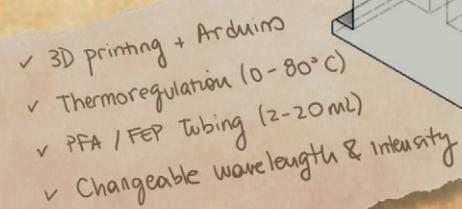 ✓ 3D printing + Arduino
✓ Thermoregulation (0-80°C)
✓ PFA / FEP Tubing (2-20mL)
✓ Changeable wavelength & Intensity